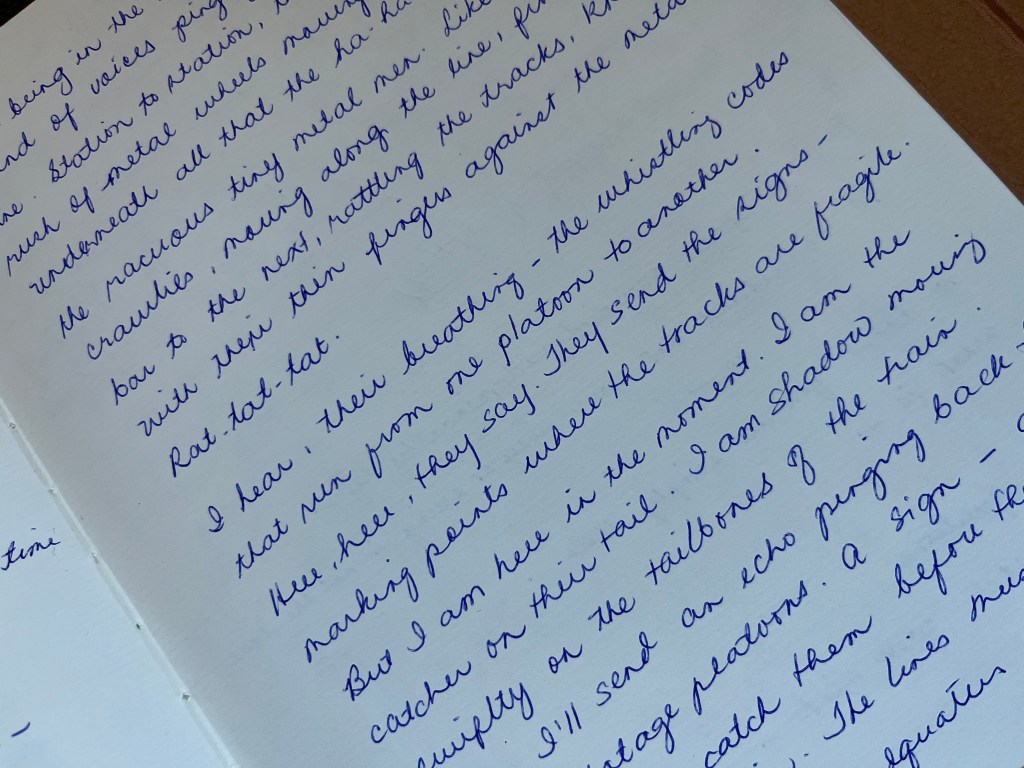 being in the
of voices ping
Station to station,
rush of metal wheels moving
underneath all that the ha-
the raucous tiny metal men. Like
crawlies, moving along the line,
bar to the next, rattling the tracks,
with their thin fingers against the metal
Rat-tat-tat.
I hear, their breathing - the whistling codes
that run from one platoon to another.
Here, here, they say. They send the signs-
marking points where the tracks are fragile.
But I am here in the moment. I am the
catcher on their tail. I am Shadow moving
swiftly on the tailbones of the train.
I'll send an echo pinging back
platoons. A sign -
catch them before
The lines
time